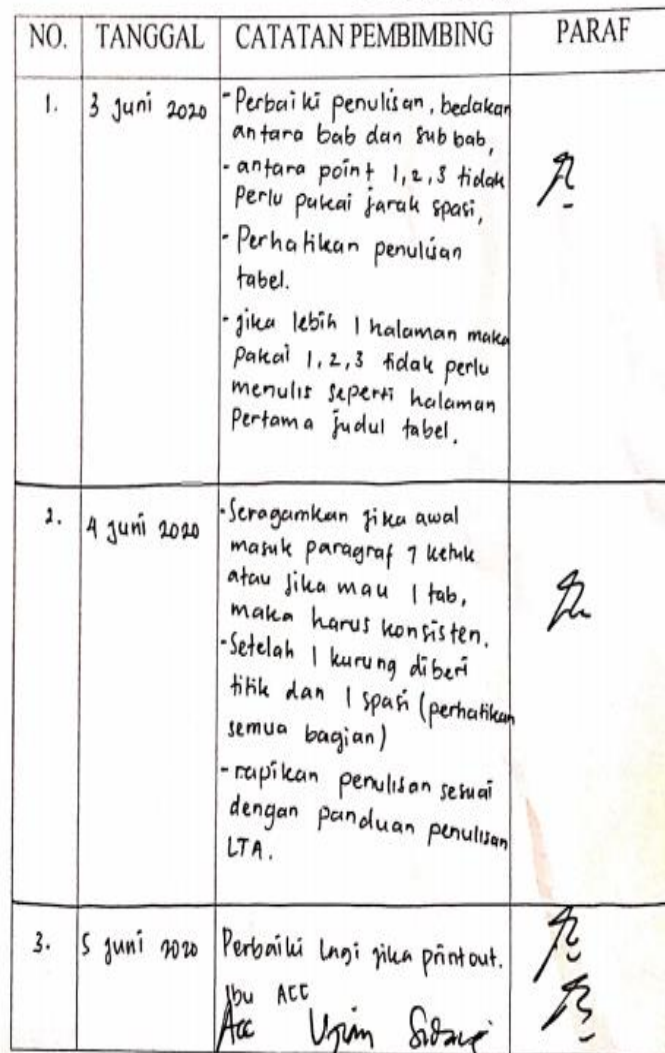 NO. TANGGAL CATATAN PEMBIMBING PARAF
1. 3 Juni 2020 - Perbaiki penulisan, bedakan
antara bab dan sub bab,
- antara point 1, 2, 3 tidak
perlu pakai jarak spasi,
- Perhatikan penulisan
tabel.
- jika lebih 1 halaman maka
pakai 1, 2, 3 tidak perlu
menulis seperti halaman
Pertama judul tabel.
2. 4 Juni 2020 - Seragamkan jika awal
masuk paragraf 7 ketuk
atau jika mau 1 tab,
maka harus konsisten.
- Setelah 1 kurung diberi
titik dan 1 spasi (perhatikan
semua bagian)
- rapikan penulisan sesuai
dengan panduan penulisan
LTA.
3. 5 Juni 2020 Perbaiki lagi jika printout.
Ibu ACC
Acc Ujian Sidang